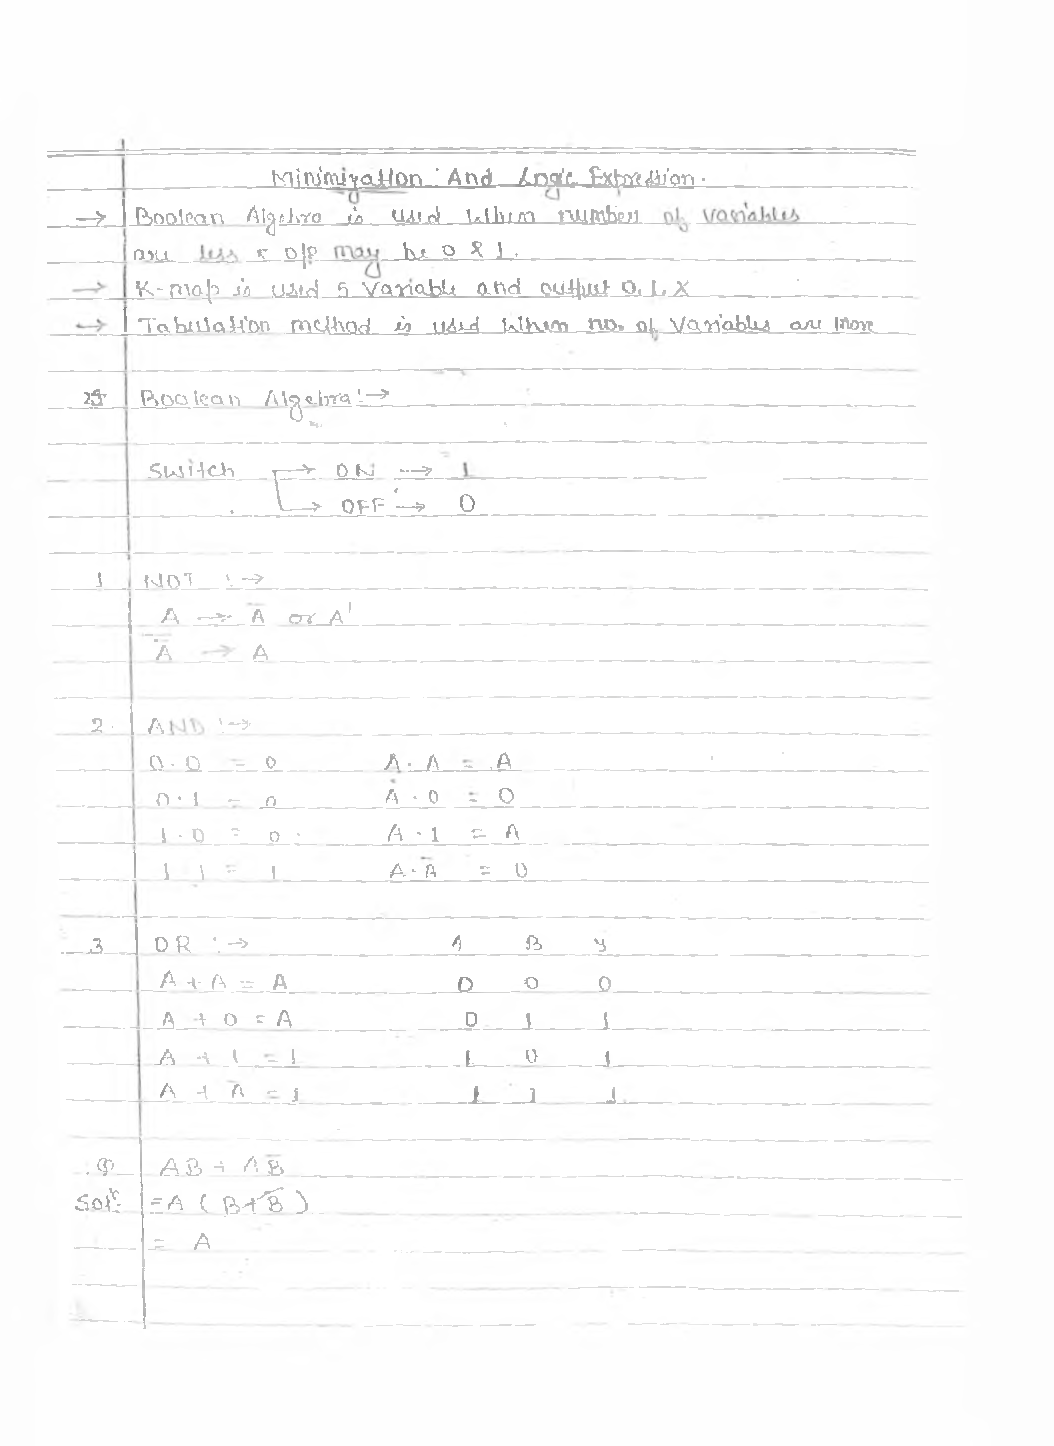 Minimization And Logic Expression.
→ Boolean Algebra is used when number of variables
are less & o/p may be 0 & 1.
→ K-map is used 5 Variable and output 0, 1, X
→ Tabulation method is used when no. of Variables are more
Boolean Algebra :→
Switch → ON → 1
→ OFF → 0
1 NOT :→
A → A̅ or A'
A̿ → A
2. AND :→
0 · 0 = 0 A · A = A
0 · 1 = 0 A · 0 = 0
1 · 0 = 0 A · 1 = A
1 1 = 1 A · A̅ = 0
3 OR :→ A B Y
A + A = A 0 0 0
A + 0 = A 0 1 1
A + 1 = 1 1 0 1
A + A̅ = 1 1 1 1
Q AB + AB̅
Solⁿ: = A ( B + B̅ )
= A